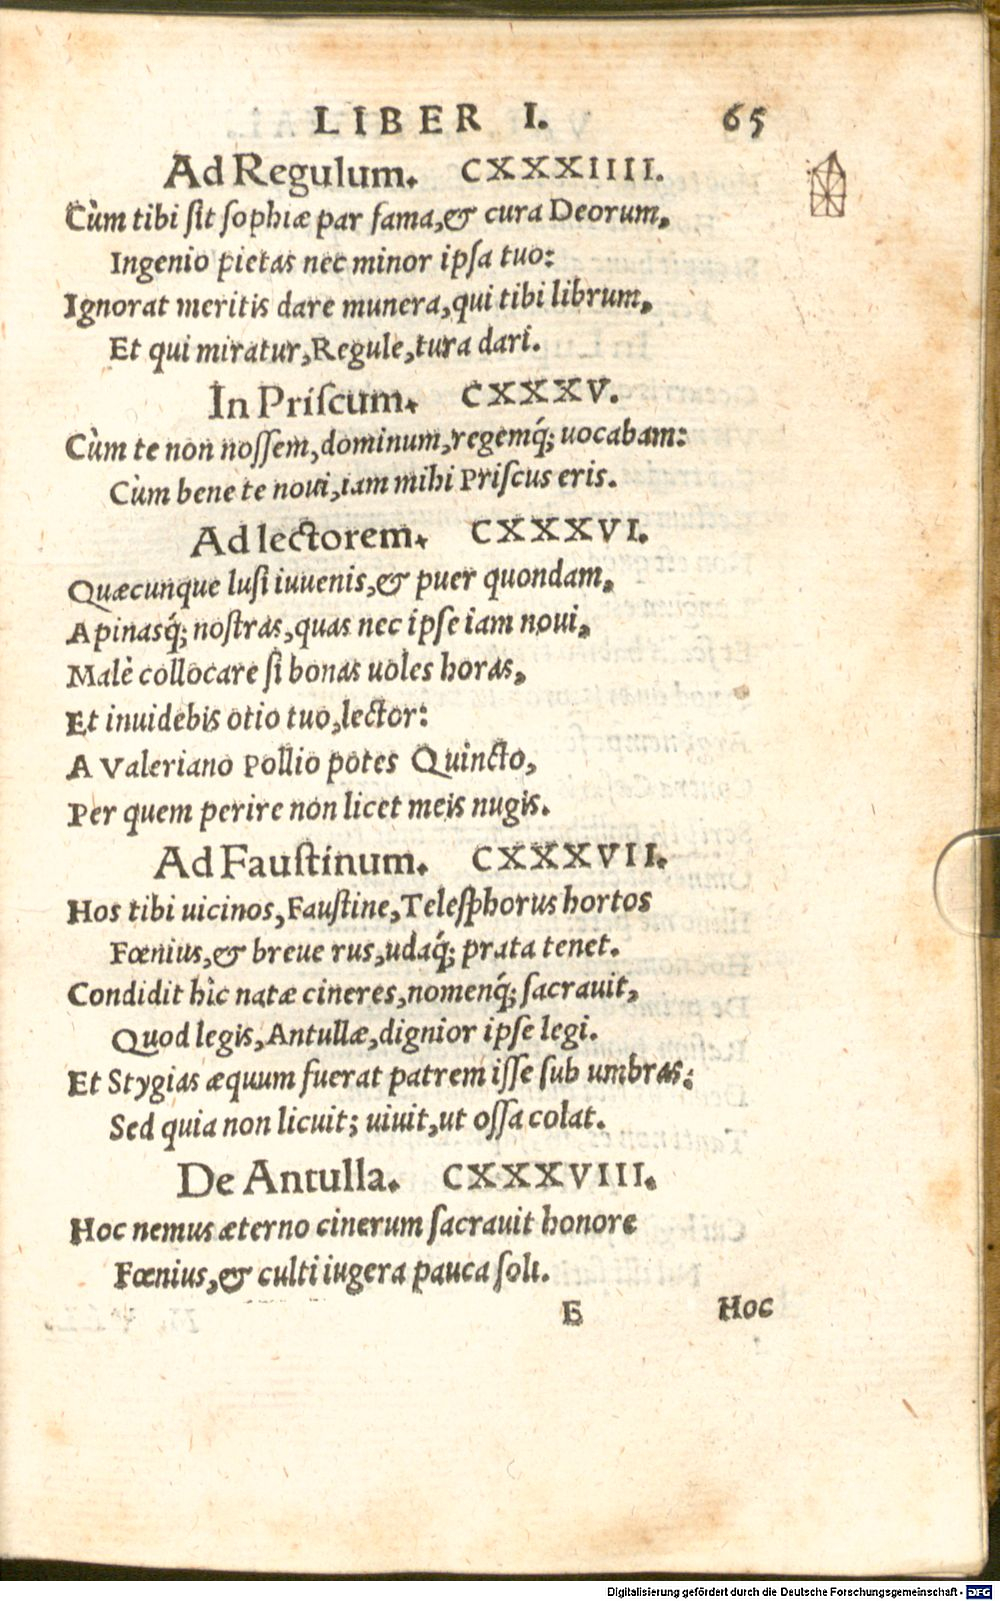 LIBER I. 65
Ad Regulum. CXXXIIII.
Cùm tibi sit sophiæ par fama, & cura Deorum,
Ingenio pietas nec minor ipsa tuo:
Ignorat meritis dare munera, qui tibi librum,
Et qui miratur, Regule, tura dari.
In Priscum. CXXXV.
Cùm te non nossem, dominum, regemq́; uocabam:
Cùm bene te noui, iam mihi Priscus eris.
Ad lectorem. CXXXVI.
Quæcunque lusi iuuenis, & puer quondam,
Apinasq́; nostras, quas nec ipse iam noui,
Malè collocare si bonas uoles horas,
Et inuidebis otio tuo, lector:
A Valeriano Pollio potes Quincto,
Per quem perire non licet meis nugis.
Ad Faustinum. CXXXVII.
Hos tibi uicinos, Faustine, Telesphorus hortos
Fœnius, & breue rus, udaq́; prata tenet.
Condidit hìc natæ cineres, nomenq́; sacrauit,
Quod legis, Antullæ, dignior ipse legi.
Et Stygias æquum fuerat patrem isse sub umbras:
Sed quia non licuit; uiuit, ut ossa colat.
De Antulla. CXXXVIII.
Hoc nemus æterno cinerum sacrauit honore
Fœnius, & culti iugera pauca soli.
E Hoc
Digitalisierung gefördert durch die Deutsche Forschungsgemeinschaft - DFG